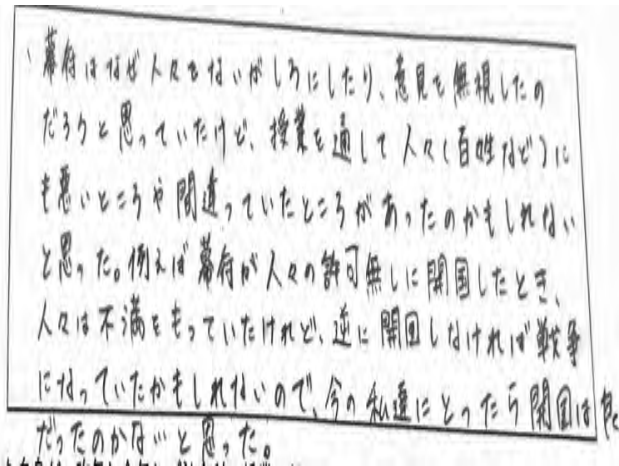 幕府はなぜ人々をないがしろにしたり、意見を無視したの
だろうと思っていたけど、授業を通して人々(百姓など)に
も悪いところや間違っていたところがあったのかもしれない
と思った。例えば幕府が人々の許可無しに開国したとき、
人々は不満をもっていたけれど、逆に開国しなければ戦争
になっていたかもしれないので、今の私達にとったら開国は良
だったのかないと思った。